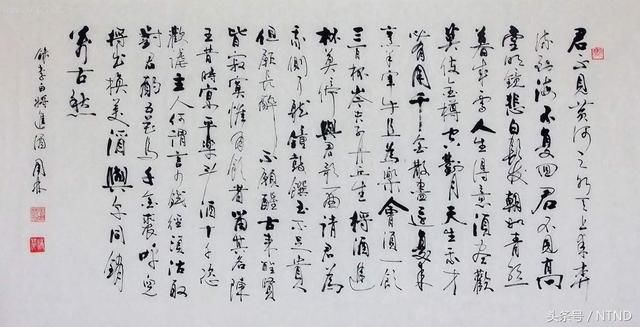 君不見黃河之水天上來奔
流到海不復回君不見高
堂明鏡悲白髮朝如青絲
暮成雪人生得意須盡歡
莫使金樽空對月天生我才
必有用千金散盡還復來
烹羊宰牛且為樂會須一飲
三百杯岑夫子丹丘生將酒進
杯莫停與君歌一曲請君為
我側耳聽鐘鼓饌玉不足貴
但願長醉不願醒古來聖賢
皆寂寞惟有飲者留其名陳
王昔時宴平樂斗酒十千恣
歡謔主人何謂言少錢徑須沽取
對君酌五花馬千金裘呼兒
將出換美酒與爾同銷
萬古愁
錄李白將進酒
头条号 / NTND